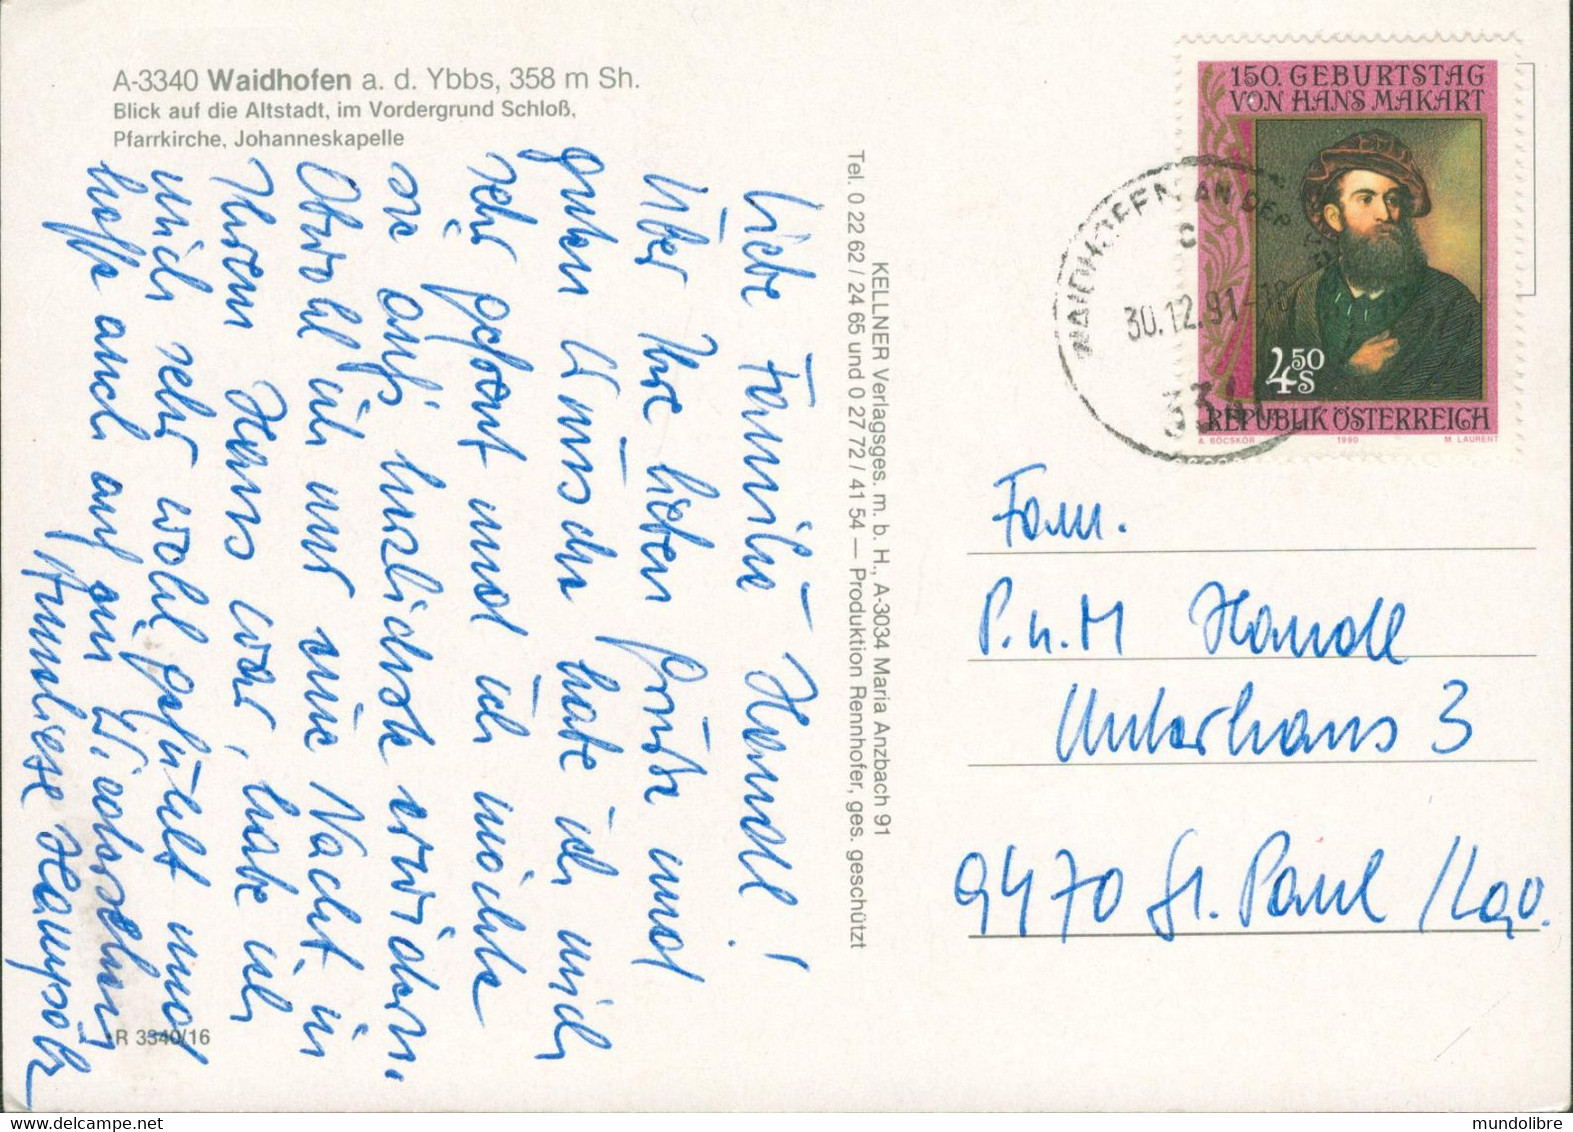 A-3340 Waidhofen a. d. Ybbs, 358 m Sh.
Blick auf die Altstadt, im Vordergrund Schloß,
Pfarrkirche, Johanneskapelle
Liebe Familie Handl!
Über Ihre lieben Grüße und
guten Wünsche habe ich mich
sehr gefreut und ich möchte
sie aufs herzlichste erwidern.
Obwohl ich nur eine Nacht in
Ihrem Haus war, habe ich
mich sehr wohl gefühlt und
hoffe auch auf ein Wiedersehen
Anneliese
R 3340/16
KELLNER Verlagsges. m. b. H., A-3034 Maria Anzbach 91
Tel. 0 22 62 / 24 65 und 0 27 72 / 41 54 — Produktion Rennhofer, ges. geschützt
150. GEBURTSTAG
VON HANS MAKART
4 50 S
REPUBLIK ÖSTERREICH
A. BÖCSKÖR 1990 M. LAURENT
WAIDHOFEN AN DER
c
30.12.91-18
Fam.
P. u. M Handl
Unterhaus 3
9470 St. Paul /Lav.
mundolibre